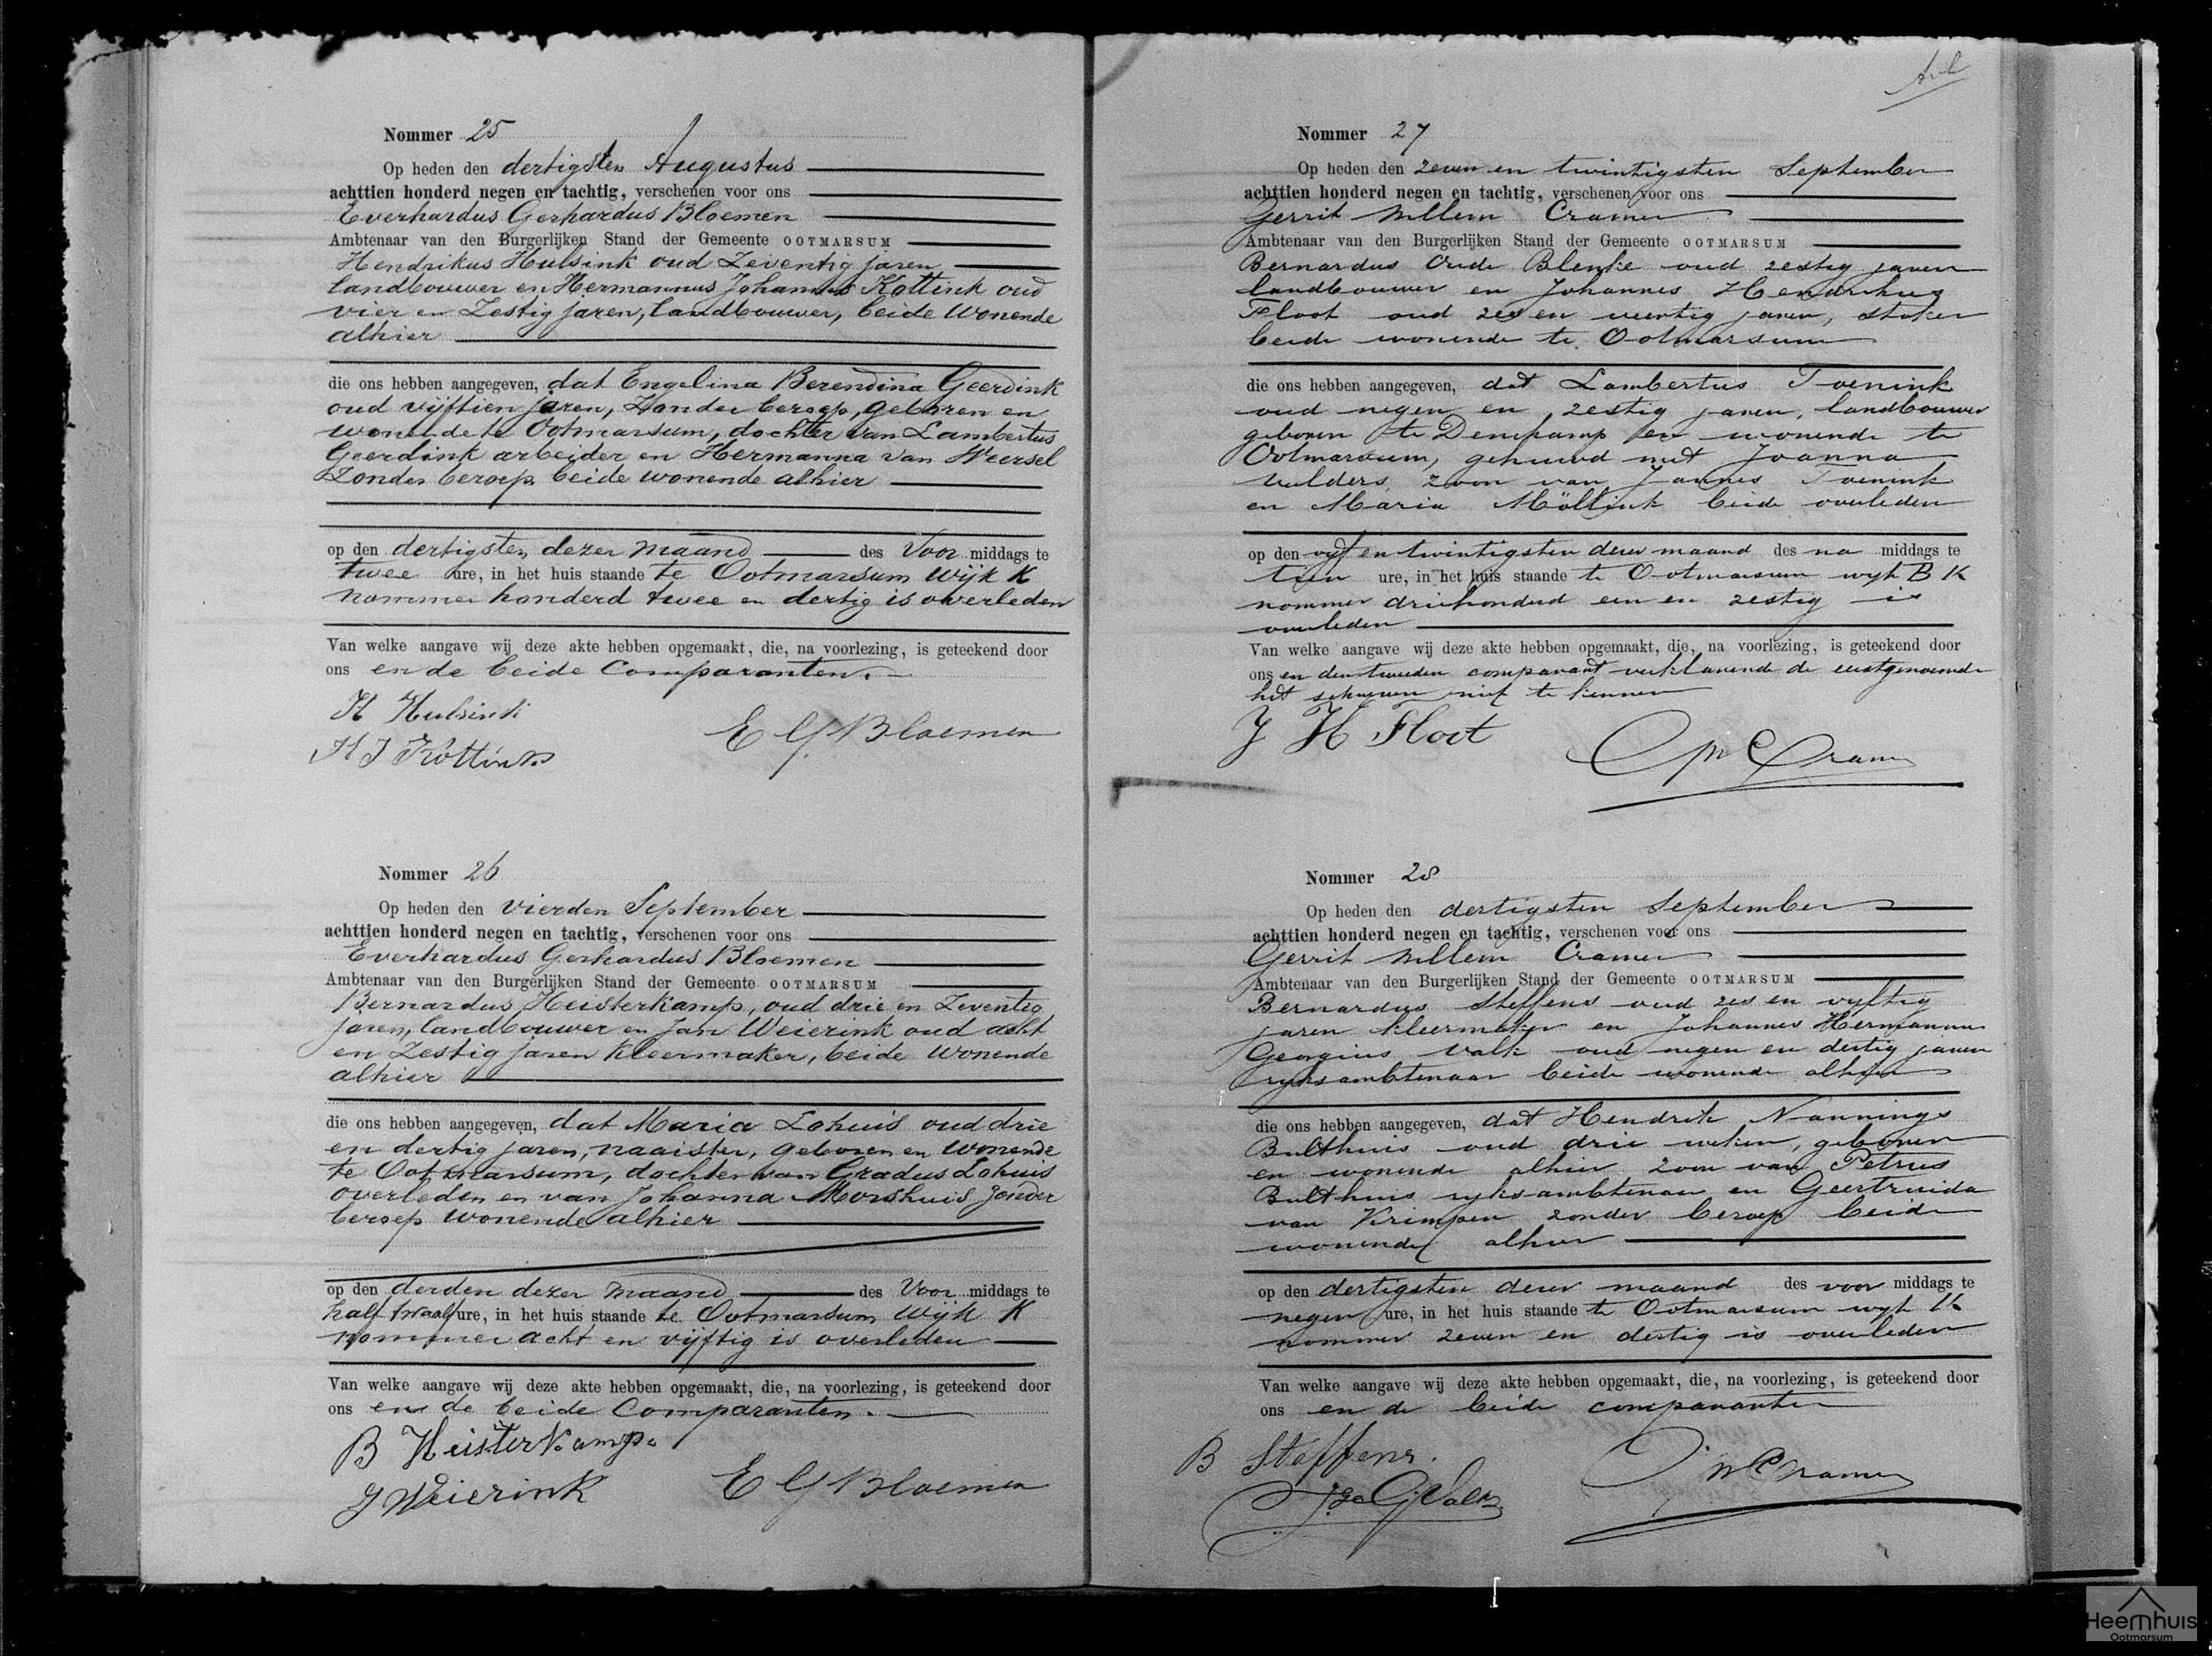 Nommer 25
Op heden den dertigsten Augustus
achttien honderd negen en tachtig, verschenen voor ons
Everhardus Gerhardus Bloemen
Ambtenaar van den Burgerlijken Stand der Gemeente OOTMARSUM
Hendrikus Hulsink oud Zeventig jaren
landbouwer en Hermannus Johannes Kottink oud
vier en Zestig jaren, landbouwer, beide Wonende
alhier
die ons hebben aangegeven, dat Engelina Berendina Geerdink
oud vijftien jaren, Zonder beroep, geboren en
wonende te Ootmarsum, dochter van Lambertus
Geerdink arbeider en Hermanna van Weersel
Zonder beroep beide wonende alhier
op den dertigsten dezer maand des Voor middags te
twee ure, in het huis staande te Ootmarsum Wijk K
nommer honderd twee en dertig is overleden
Van welke aangave wij deze akte hebben opgemaakt, die, na voorlezing, is geteekend door
ons en de beide Comparanten.
H Hulsink
H J Kottink
E G Bloemen
Nommer 26
Op heden den vierden September
achttien honderd negen en tachtig, verschenen voor ons
Everhardus Gerhardus Bloemen
Ambtenaar van den Burgerlijken Stand der Gemeente OOTMARSUM
Bernardus Heisterkamp, oud drie en Zeventig
jaren, landbouwer en Jan Weierink oud acht
en Zestig jaren kleermaker, beide Wonende
alhier
die ons hebben aangegeven, dat Maria Lohuis oud drie
en dertig jaren, naaister, geboren en Wonende
te Ootmarsum, dochter van Gradus Lohuis
overleden en van Johanna Morshuis Zonder
beroep wonende alhier
op den derden dezer maand des Voor middags te
half twaalf ure, in het huis staande te Ootmarsum Wijk K
nommer acht en vijftig is overleden
Van welke aangave wij deze akte hebben opgemaakt, die, na voorlezing, is geteekend door
ons en de beide Comparanten.
B Heisterkamp
J Weierink
E G Bloemen
Nommer 27
Op heden den zeven en twintigsten September
achttien honderd negen en tachtig, verschenen voor ons
Gerrit Willem Cramer
Ambtenaar van den Burgerlijken Stand der Gemeente OOTMARSUM
Bernardus Oude Blenke oud zestig jaren
landbouwer en Johannes Hendrikus
Floot oud zes en veertig jaren, stoker
beide wonende te Ootmarsum
die ons hebben aangegeven, dat Lambertus Toenink
oud negen en zestig jaren, landbouwer
geboren te Denekamp en wonende te
Ootmarsum, gehuwd met Joanna
Mulders, zoon van Jannes Toenink
en Maria Möllink beide overleden
op den vijf en twintigsten dezer maand des na middags te
tien ure, in het huis staande te Ootmarsum wijk B K
nommer driehonderd een en zestig is
overleden
Van welke aangave wij deze akte hebben opgemaakt, die, na voorlezing, is geteekend door
ons en den tweeden comparant verklarende de eerstgenoemde
het schrijven niet te kennen
J H Floot
GW Cramer
Nommer 28
Op heden den dertigsten September
achttien honderd negen en tachtig, verschenen voor ons
Gerrit Willem Cramer
Ambtenaar van den Burgerlijken Stand der Gemeente OOTMARSUM
Bernardus Steffens oud zes en vijftig
jaren kleermaker en Johannes Hermannus
Georgius Valk oud negen en dertig jaren
rijksambtenaar beide wonende alhier
die ons hebben aangegeven, dat Hendrik Nannings
Bulthuis oud drie weken, geboren
en wonende alhier zoon van Petrus
Bulthuis rijksambtenaar en Geertruida
van Krimpen zonder beroep beide
wonende alhier
op den dertigsten dezer maand des voor middags te
negen ure, in het huis staande te Ootmarsum wijk K
nommer zeven en dertig is overleden
Van welke aangave wij deze akte hebben opgemaakt, die, na voorlezing, is geteekend door
ons en de beide comparanten
B Steffens.
GW Cramer
Heemhuis
Ootmarsum